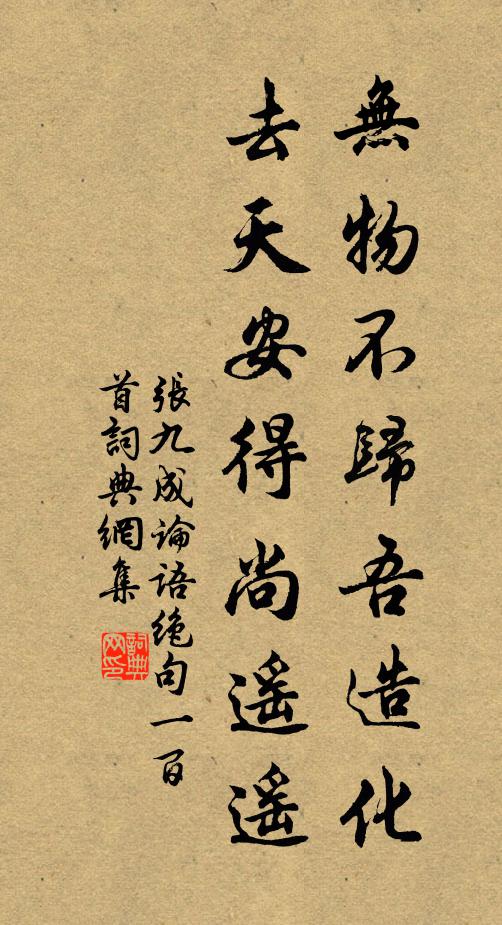 無物不歸吾造化
去天安得尚遥遥
張九成論語絶句一百
首詞典網集
詞典
网印